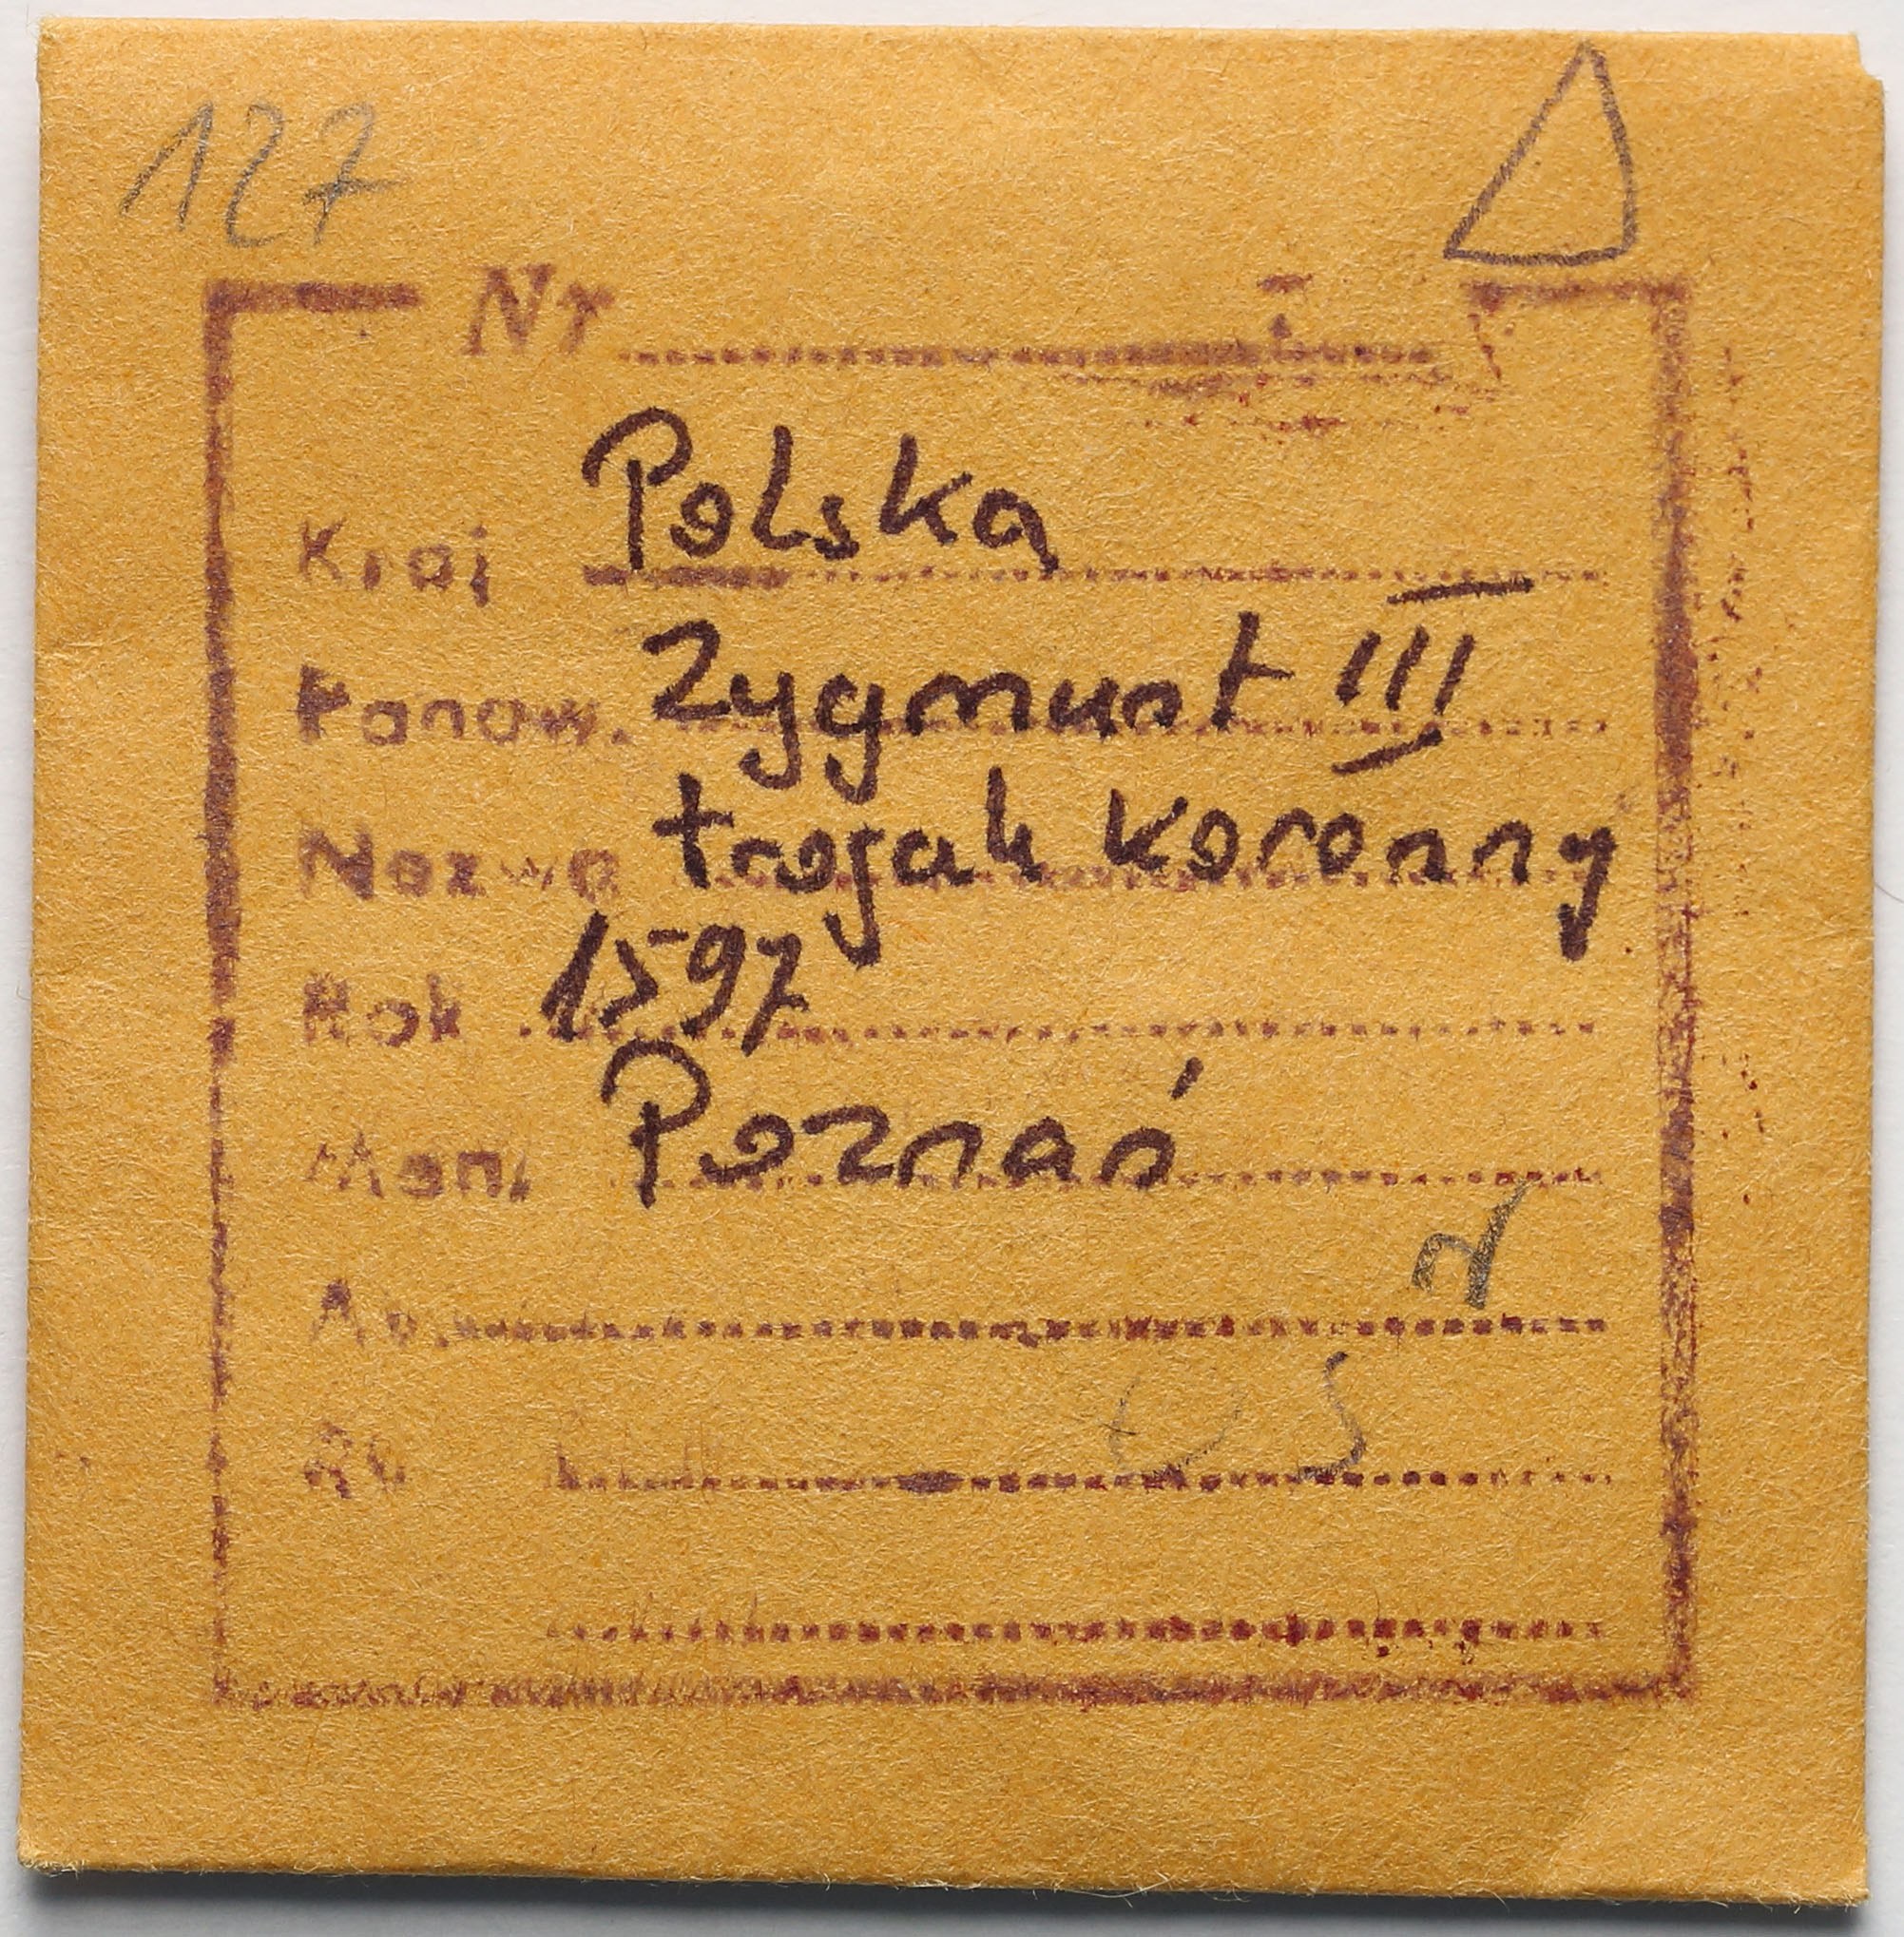 127
Nr
Kraj Polska
Panow. Zygmunt III
Nazwa trojak koronny
Rok 1597
Men. Poznań
Av.
Rv.